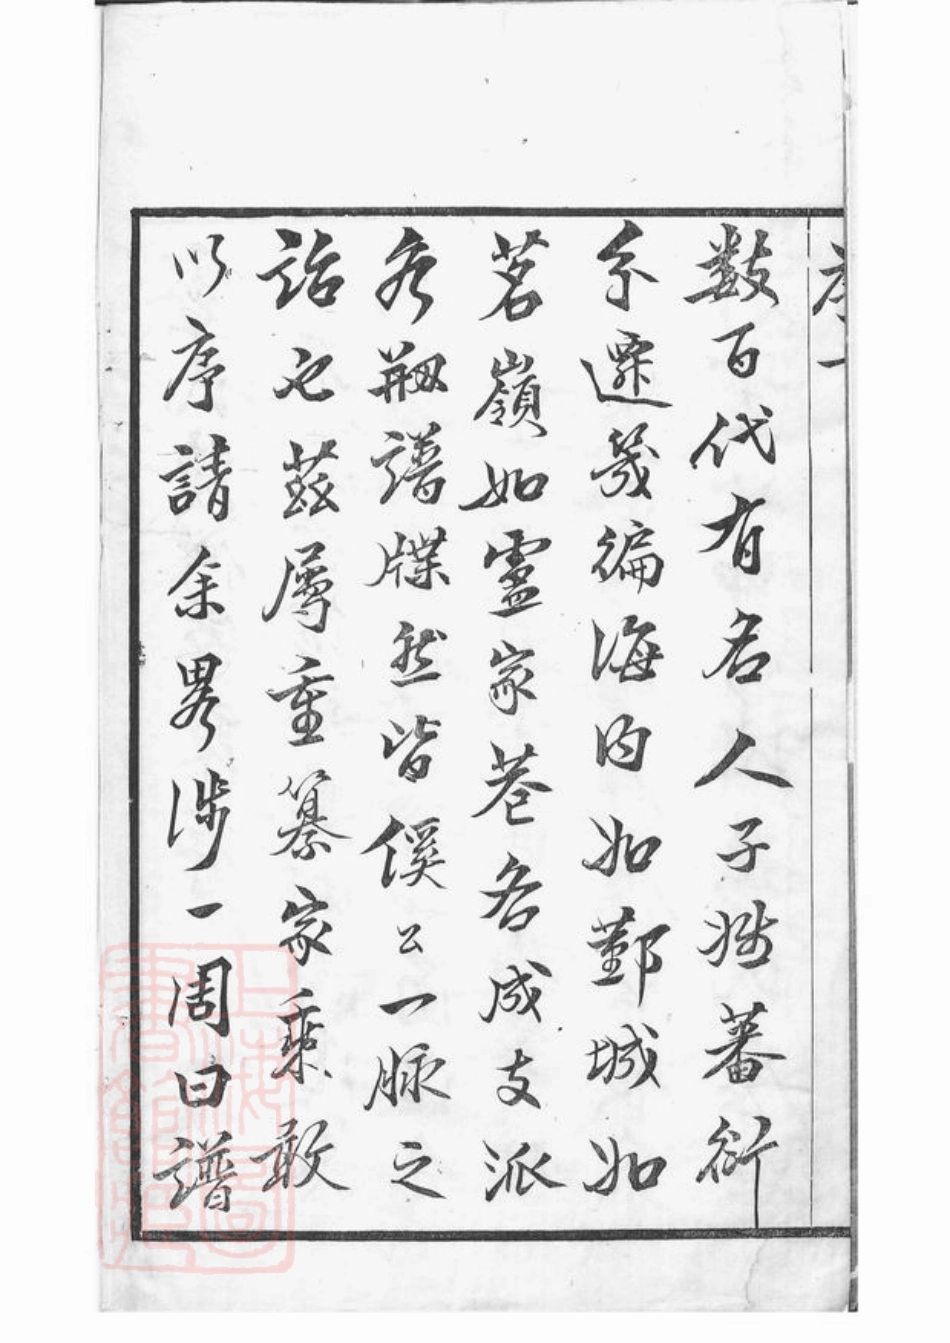 序一
數百代有名人子姓蕃衍
分遷幾徧海内如鄞城如
茗嶺如靈家巷各成支派
各刱譜牒然皆僕公一脉之
詒也茲届重纂家乘敢
以序請余畧涉一周曰譜